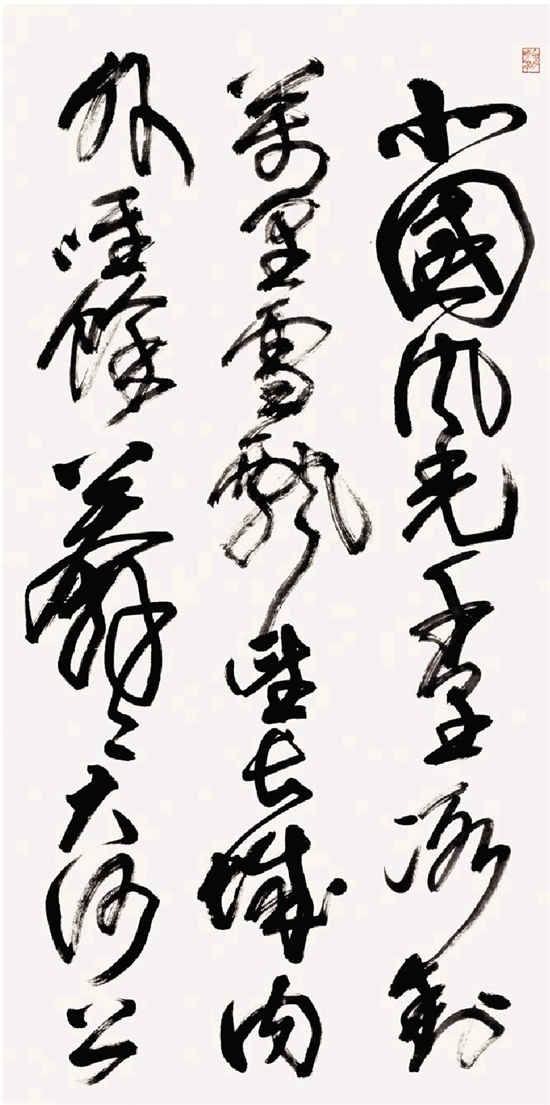 北國風光千里冰封
萬里雪飄望長城內
外惟餘莽々大河上